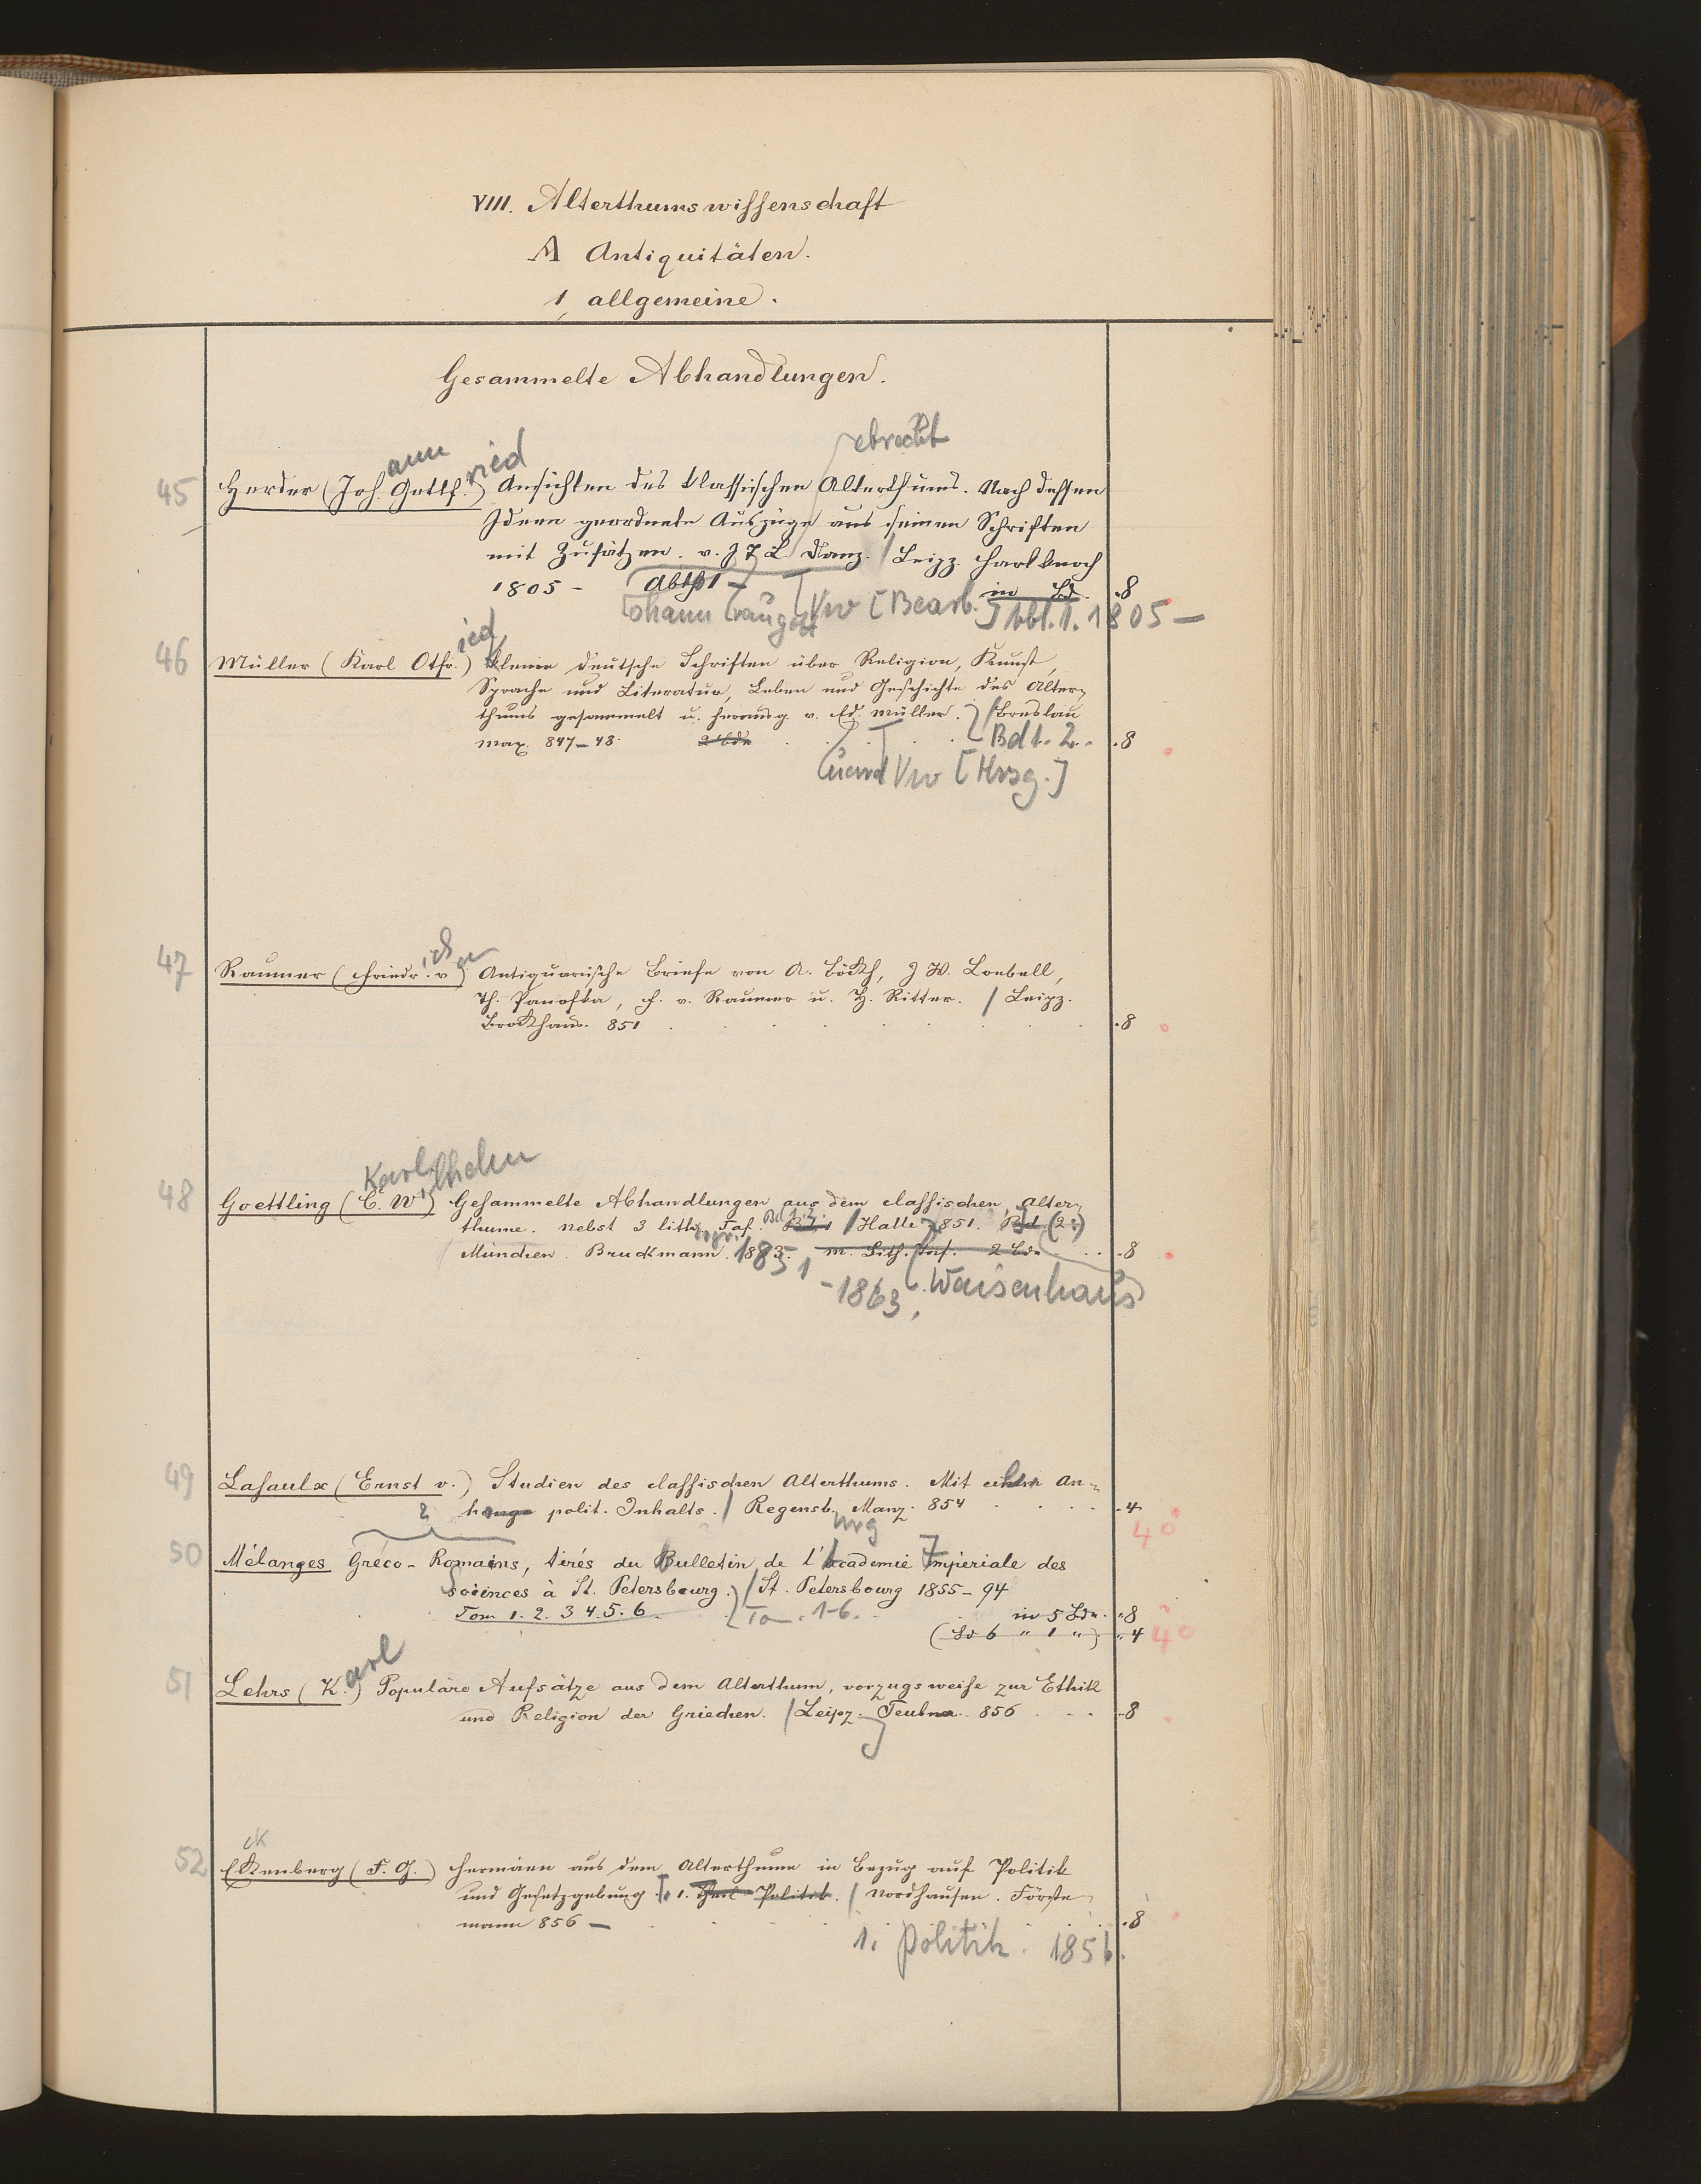 VIII. Alterthumswissenschaft
A Antiquitäten.
1, allgemeine.
Gesammelte Abhandlungen.
ebrecht
ann ried
45 Herder (Joh. Gottf.) Ansichten des klassischen Alterthums. Nach dessen
Ideen geordnete Auszüge aus seinen Schriften
mit Zusätzen. v. J T L Danz. / Leipz. Hartknoch
1805 - Abth 1 - in Bd. .8
ohann raugott Vw [Bearb.] Abt. 1. 1805 -
ied
46 Müller (Karl Otfr.) Kleine deutsche Schriften über Religion, Kunst,
Sprache und Literatur, Leben und Geschichte des Alter-
thums gesammelt u. herausg. v. Ed. Müller. / Breslau
Max. 847-48. 2 Bde Bd 1. 2. .8
uard Vw [Hrsg.]
ich on
47 Raumer (Friedr. v) Antiquarische Briefe von A. Böckh, J W. Loebell,
Th. Panofka, F. v. Raumer u. H. Ritter. / Leipz.
Brockhaus. 851 .8
Karl ilhelm
48 Goettling (C. W) Gesammelte Abhandlungen aus dem classischen Alter-
thume. Nebst 3 lith. Taf. Bd 1. 2. / Halle 851. Bd (2:)
München. Bruckmann. 1863. m. Lith. Taf. 2 Bde .8
1 -1863. Waisenhaus
49 Lasaulx (Ernst v.) Studien des classischen Alterthums. Mit einem An-
hange polit. Inhalts. / Regensb. Manz. 854 .4
urg 4°
50 Mélanges Gréco-Romains, tirés du Bulletin de l'Academie Imperiale des
Sciences à St. Petersbourg. / St. Petersbourg 1855-94
Tom 1. 2. 3 4. 5. 6. Tom. 1-6. in 5 Bdn. .8
(Bd 6 " 1 ") " 4 4°
arl
51 Lehrs (K.) Populäre Aufsätze aus dem Alterthum, vorzugsweise zur Ethik
und Religion der Griechen. / Leipz. Teubner. 856 .8
ck
52 Eckenberg (F. G.) Hermäen aus dem Alterthume in Bezug auf Politik
und Gesetzgebung. 1. Theil Politik. / Nordhausen. Förste-
mann 856 - .8
1. Politik. 1856.